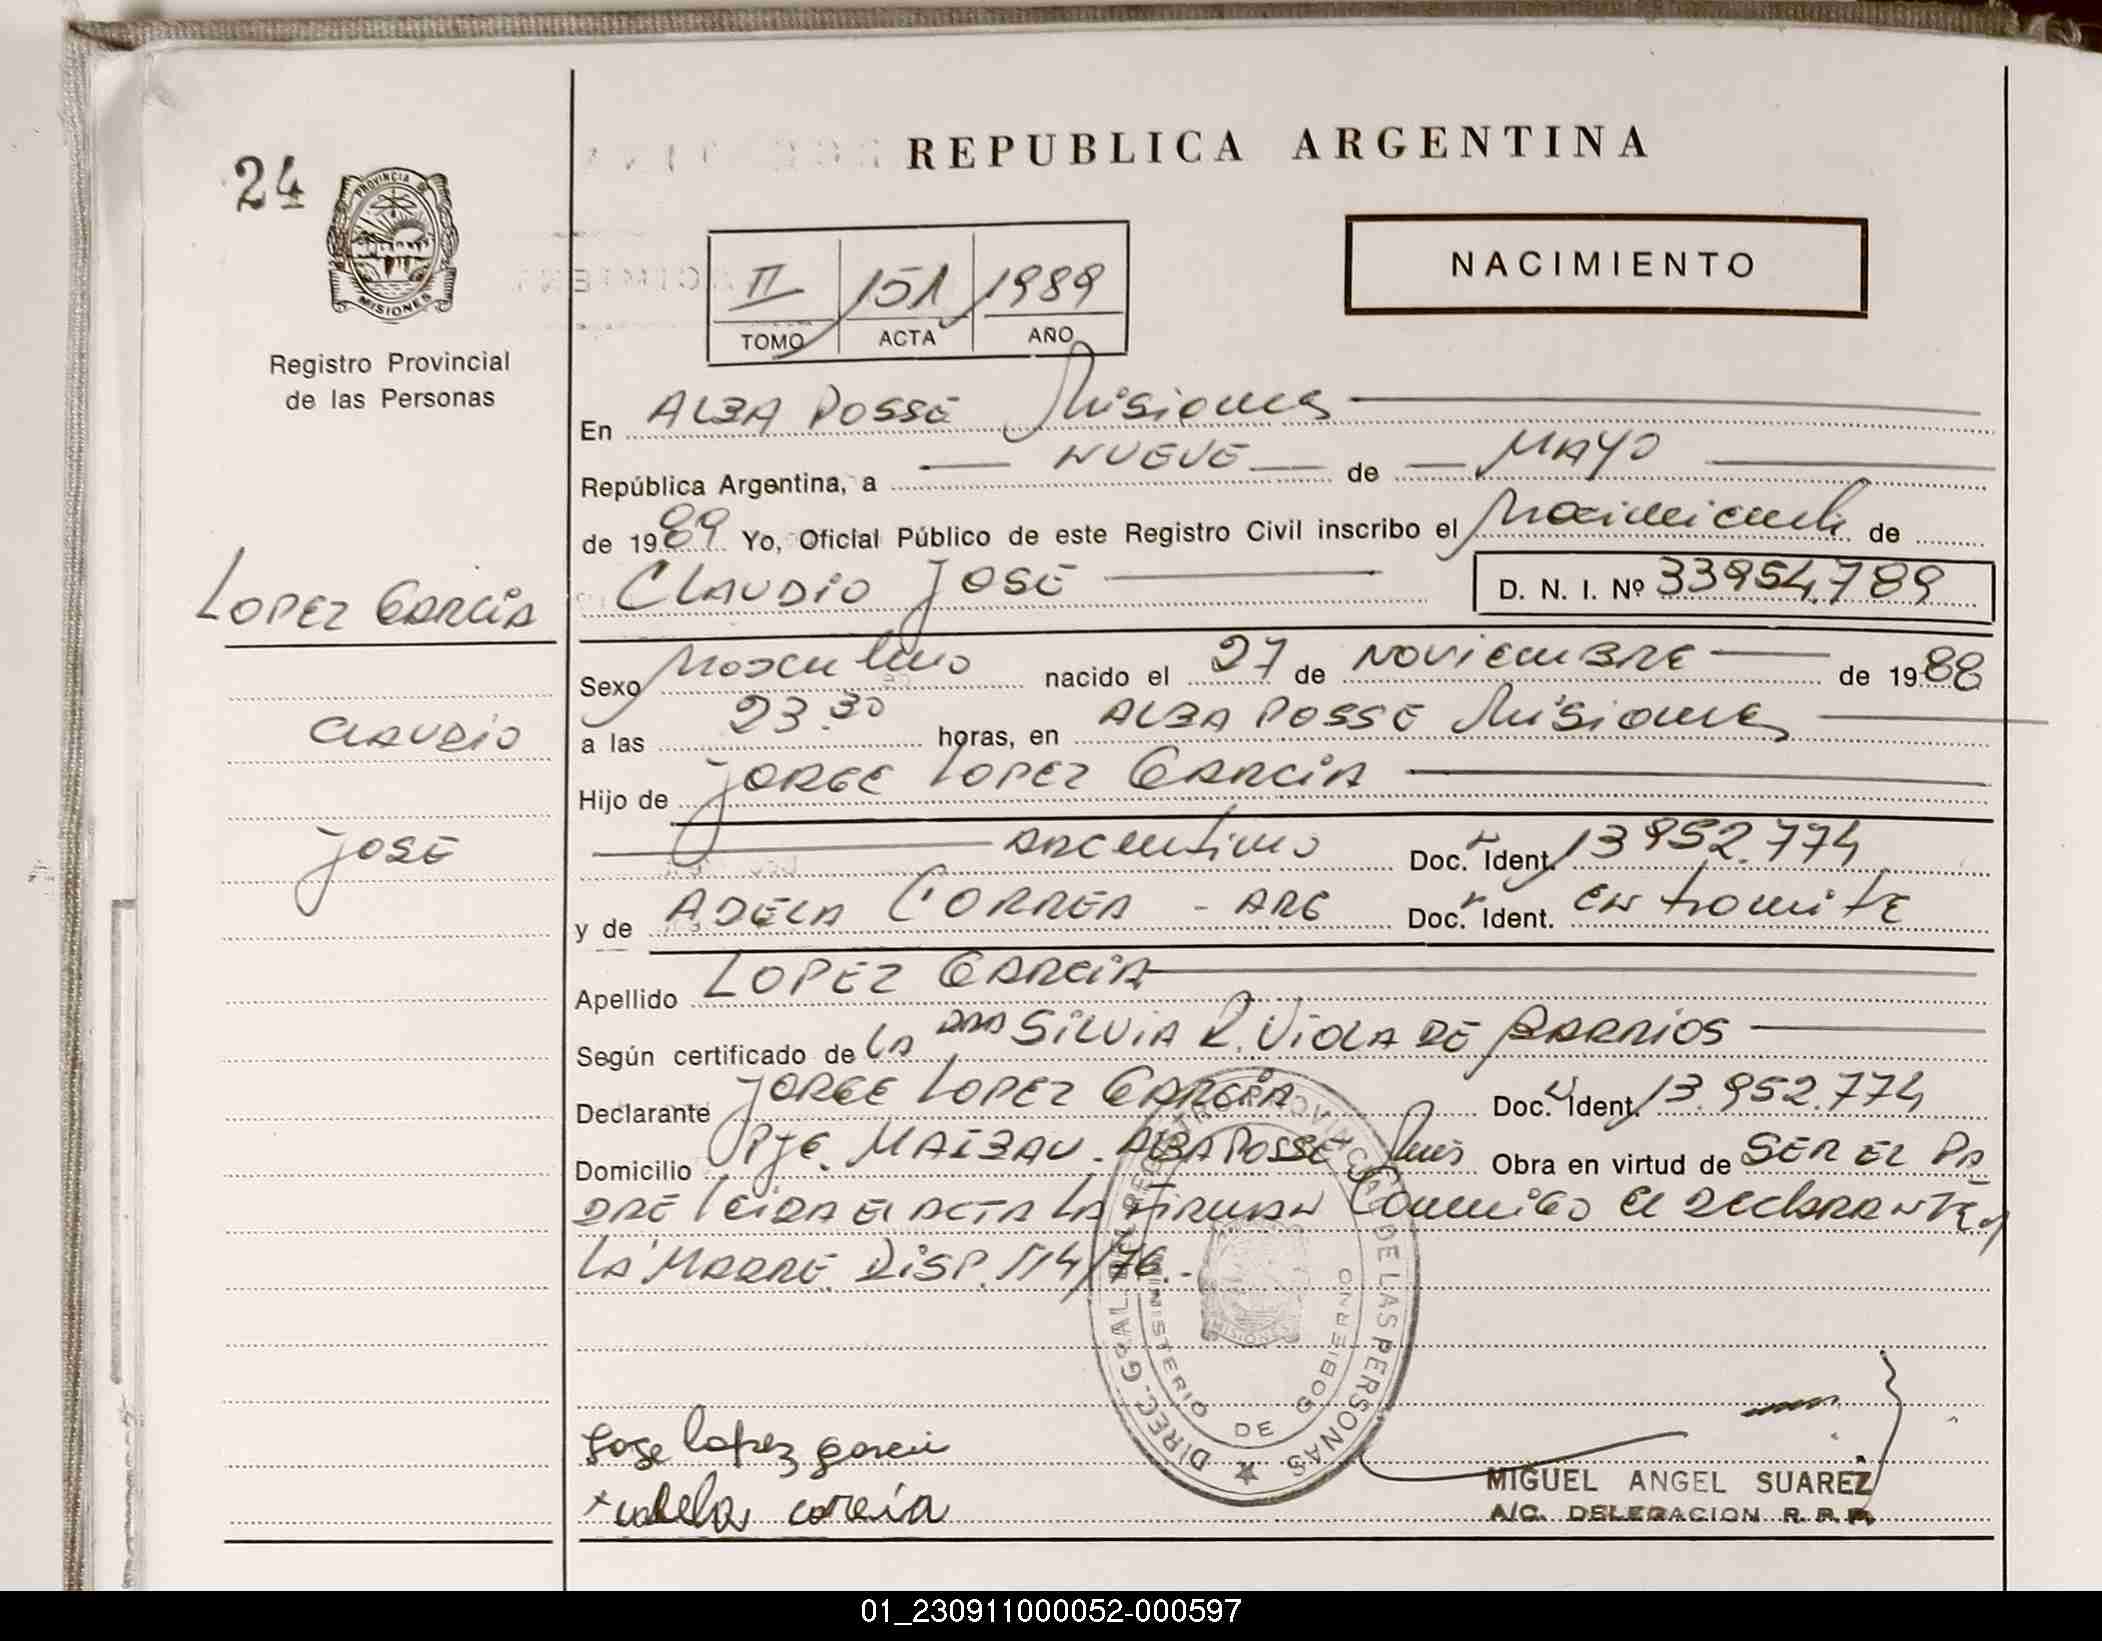 24
PROVINCIA DE
MISIONES
Registro Provincial
de las Personas
LOPEZ GARCIA
CLAUDIO
JOSE
REPUBLICA ARGENTINA
II 151 1989
TOMO ACTA AÑO
NACIMIENTO
En ALBA POSSE Misiones
República Argentina, a NUEVE de MAYO
de 1989 Yo, Oficial Público de este Registro Civil inscribo el Nacimiento de
CLAUDIO JOSE D. N. I. Nº 33954.789
Sexo Masculino nacido el 27 de NOVIEMBRE de 1988
a las 23.30 horas, en ALBA POSSE Misiones
Hijo de JORGE LOPEZ GARCIA
ARGENTINO Doc. Ident. 13952.774
y de ADELA CORREA - ARG Doc. Ident. EN tramite
Apellido LOPEZ GARCIA
Según certificado de LA DRA SILVIA R. VIOLA DE BARRIOS
Declarante JORGE LOPEZ GARCIA Doc. Ident. 13.952.774
Domicilio PJE. ALBA POSSE Mnes Obra en virtud de SER EL PA
DRE LEIDA EL ACTA LA FIRMAN Conmigo el DECLARANTE y
LA MADRE. DISP. 114/76.-
DIREC. GRAL. DEL REGISTRO PROVINCIAL DE LAS PERSONAS
MINISTERIO DE GOBIERNO
MISIONES
Jose lopez garcia
adela correia
MIGUEL ANGEL SUAREZ
A/C. DELEGACION R. P. P.
01_230911000052-000597